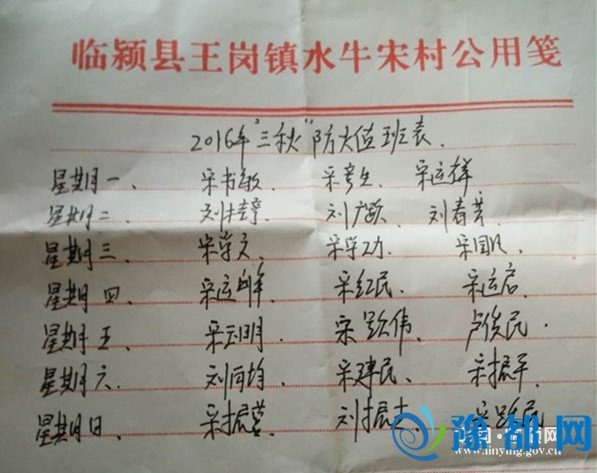 临颍县王岗镇水牛宋村公用笺
2016年"三秋"防火值班表.
星期一、 宋书敏、 宋孝生、 宋运祥
星期二、 刘 刘广欣、 刘春芳、
星期三、 宋学文、 宋学功、 宋国
星期四、 宋运峰、 宋红民、 宋运启、
星期五、 宋云明、 宋跃伟、 卢俊民.
星期六、 刘同均、 宋建民、 宋振平、
星期日、 宋振营、 刘振 宋跃民
豫都网
www.linying.gov.cn